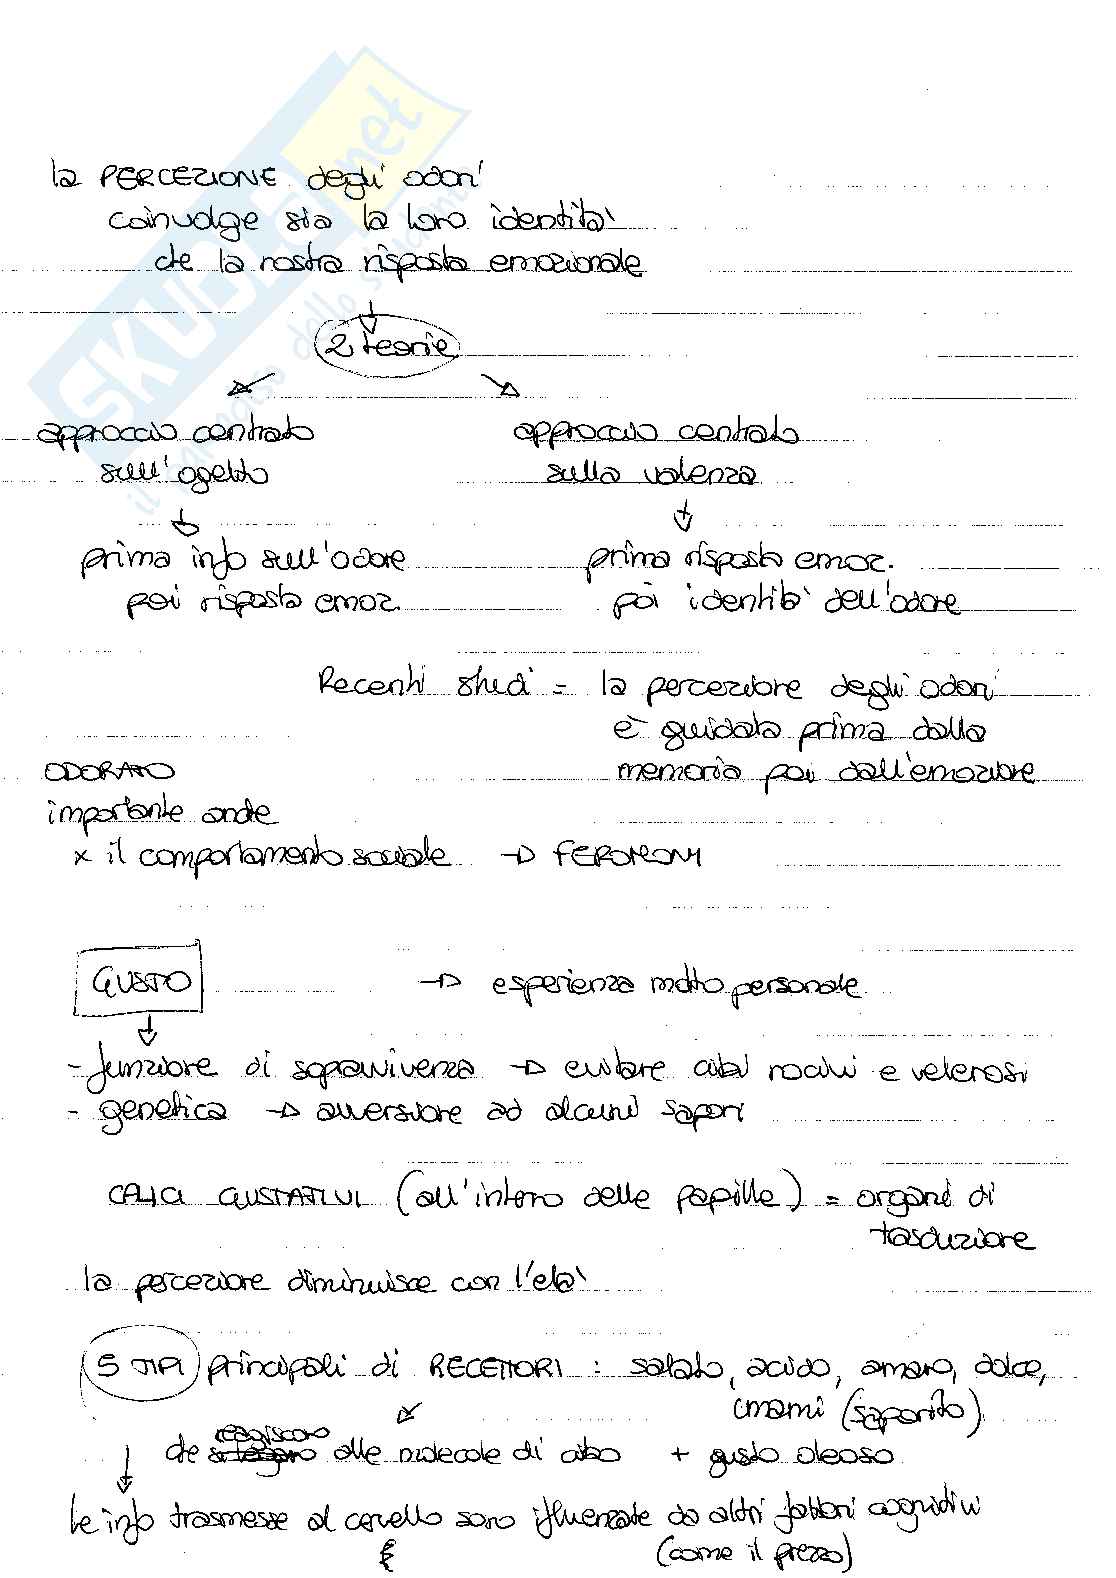 la PERCEZIONE degli odori
coinvolge sia la loro identità
che la nostra risposta emozionale
2 teorie
approccio centrato
sull'ogetto
approccio centrato
sulla valenza
prima info sull'odore
poi risposta emoz.
prima risposta emoz.
poi identità dell'odore
Recenti studi = la percezione degli odori
è guidata prima dalla
memoria poi dall'emozione
ODORATO
importante anche
x il comportamento sociale → FEROMONI
GUSTO → esperienza molto personale
- funzione di sopravvivenza → evitare cibi nocivi e velenosi
- genetica → avversione ad alcuni sapori
CALICI GUSTATIVI (all'interno delle papille) = organi di
trasduzione
la percezione diminuisce con l'età
5 TIPI principali di RECETTORI : salato, acido, amaro, dolce,
umami (saporito)
reagiscono
che alle molecole di cibo + gusto oleoso
le info trasmesse al cervello sono influenzate da altri fattori cognitivi
(come il prezzo)
SKUOLA.net
il paradiso dello studente